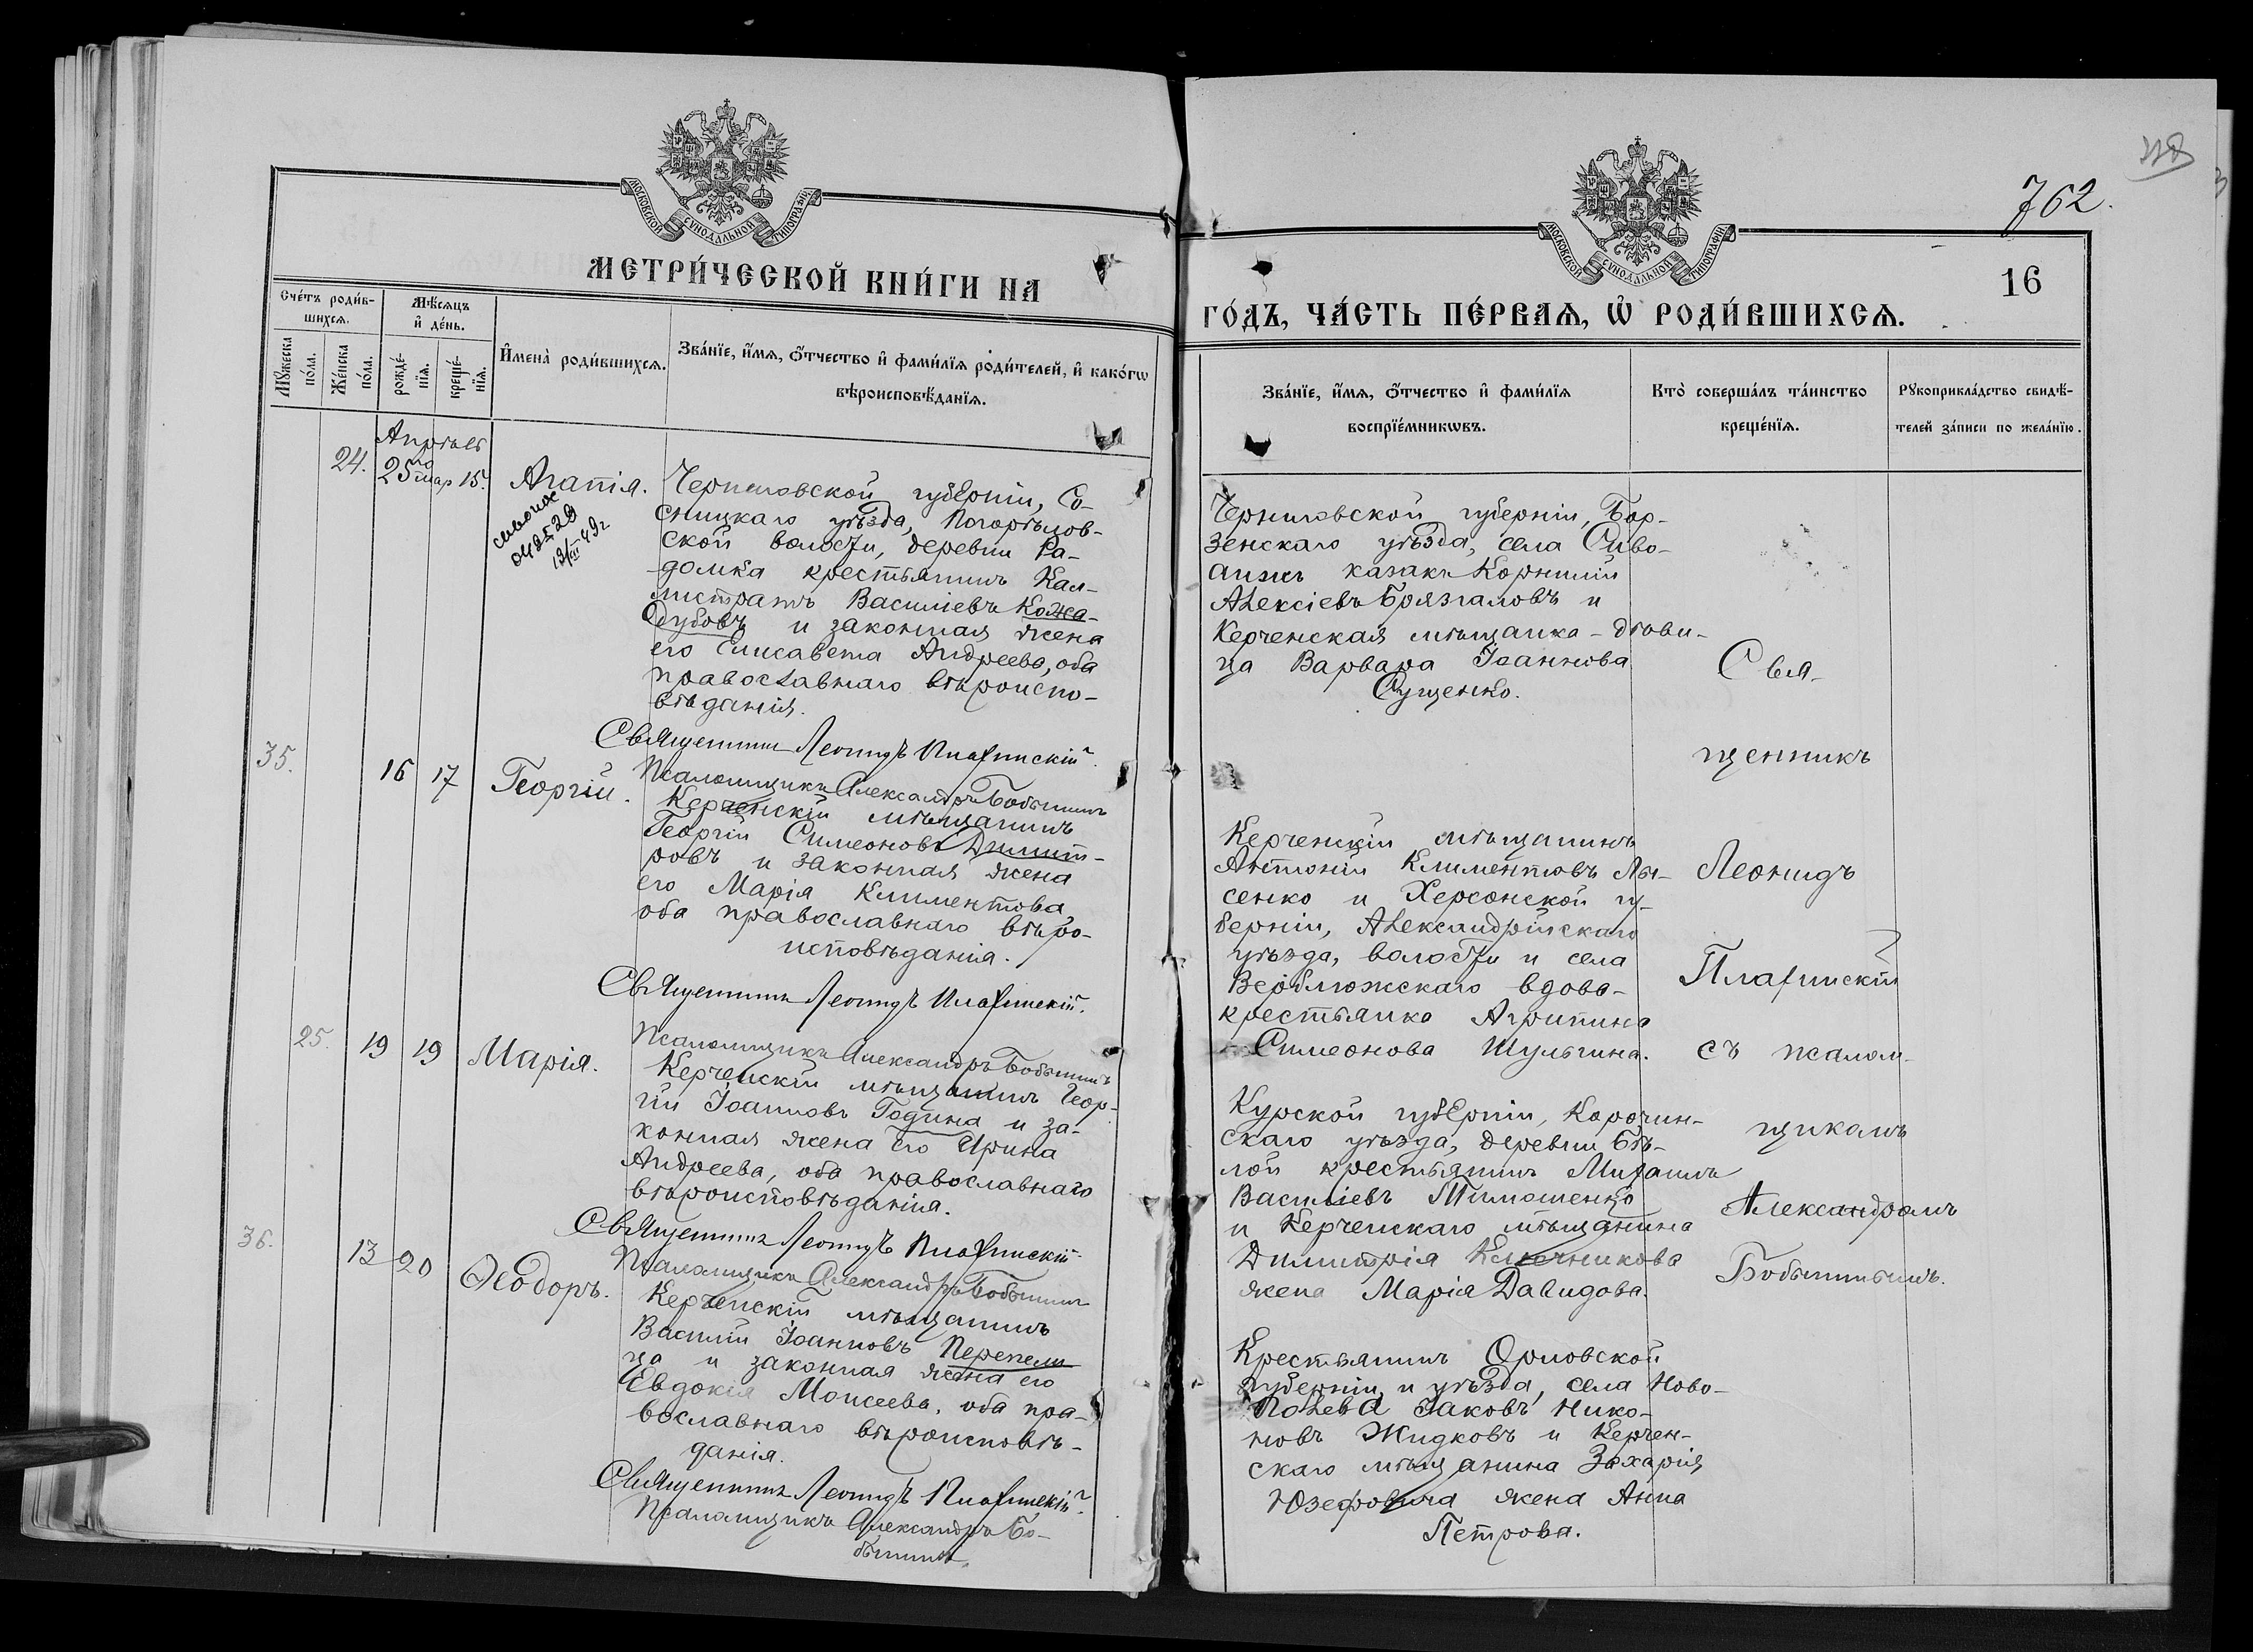 МОСКОВСКОЙ СѴНОДАЛЬНОЙ ТИПОГРАФІИ
МЕТРИ́ЧЕСКОЙ КНИ́ГИ НА
Сче́тъ роди́в-
шихсѧ.
Мѣ́сѧцъ
и҆ де́нь.
Мꙋ́жеска
по́ла.
Же́нска
по́ла.
рожде́-
нїѧ.
креще́-
нїѧ.
И҆мена̀ роди́вшихсѧ.
Зва́нїе, и҆́мѧ, ѻ҆́тчество и҆ фами́лїѧ роди́телей, и҆ како́гѡ
вѣроисповѣ́данїѧ.
24.
Апрѣль
25го мар 15.
Агапія.
19/III 49г
Черниговской губерніи, Со-
сницкаго уѣзда, Погорѣлов-
ской волости, деревни Ра-
домка крестьянинъ Кал-
листратъ Василіевъ Кожа-
Одубовъ и законная жена
его Елисавета Андреева, оба
православнаго вѣроиспо-
вѣданія.
Священникъ Леонидъ
Псаломщикъ Александръ Бобынинъ
35.
16 17 Георгій.
Керченскій мѣщанинъ
Георгій Симеоновъ Димит-
ровъ и законная жена
его Марія Климентова
оба православнаго вѣро-
исповѣданія.
Священникъ Леонидъ
Псаломщикъ Александръ Бобынинъ
25.
19 19 Марія.
Керченскій мѣщанинъ Геор-
гій Іоанновъ Година и за-
конная жена его Ирина
Андреева, оба православнаго
вѣроисповѣданія.
Священникъ Леонидъ
Псаломщикъ Александръ Бобынинъ
36.
13 20 Ѳеодоръ.
Керченскій мѣщанинъ
Василій Іоанновъ Перепели
ца и законная жена его
Евдокія Моисеева, оба пра-
вославнаго вѣроисповѣ-
данія.
Священникъ Леонидъ
Псаломщикъ Александръ Бо-
бынинъ.
762.
МОСКОВСКОЙ СѴНОДАЛЬНОЙ ТИПОГРАФІИ
16
ГО́ДЪ, ЧА́СТЬ ПЕ́РВАѦ, Ѡ҆ РОДИ́ВШИХСѦ.
Зва́нїе, и҆́мѧ, ѻ҆́тчество и҆ фами́лїѧ
воспрїе́мникѡвъ.
Кто̀ соверша́лъ та́инство
креще́нїѧ.
Рꙋкоприкла́дство свидѣ́-
телей за́писи по жела́нїю.
Черниговской губерніи, Бор-
зенскаго уѣзда, села Сиво-
лижъ казакъ Корнилій
Алексіевъ Брязгаловъ и
Керченская мѣщанка-дѣви-
ца Варвара Іоаннова
Сущенко.
Керченскій мѣщанинъ
Антоній Климентовъ Лы-
сенко и Херсонской гу-
берніи, Александрійскаго
уѣзда, волости и села
Верблюжскаго вдова-
крестьянка Агрипина
Симеонова Шульгина.
Курской губерніи, Корочин-
скаго уѣзда, деревни Бѣ-
лой крестьянинъ Михаилъ
Василіевъ Тимошенко
и Керченскаго мѣщанина
Димитрія Ключникова
жена Марія Давидова.
Крестьянинъ Орловской
губерніи и уѣзда, села Ново-
Полева Іаковъ Нико-
новъ Жидковъ и Керчен-
скаго мѣщанина Захарія
Юзефовича жена Анна
Петрова.
Свя-
щенникъ
Леонидъ
съ псалом-
щикомъ
Александромъ
Бобынинымъ.